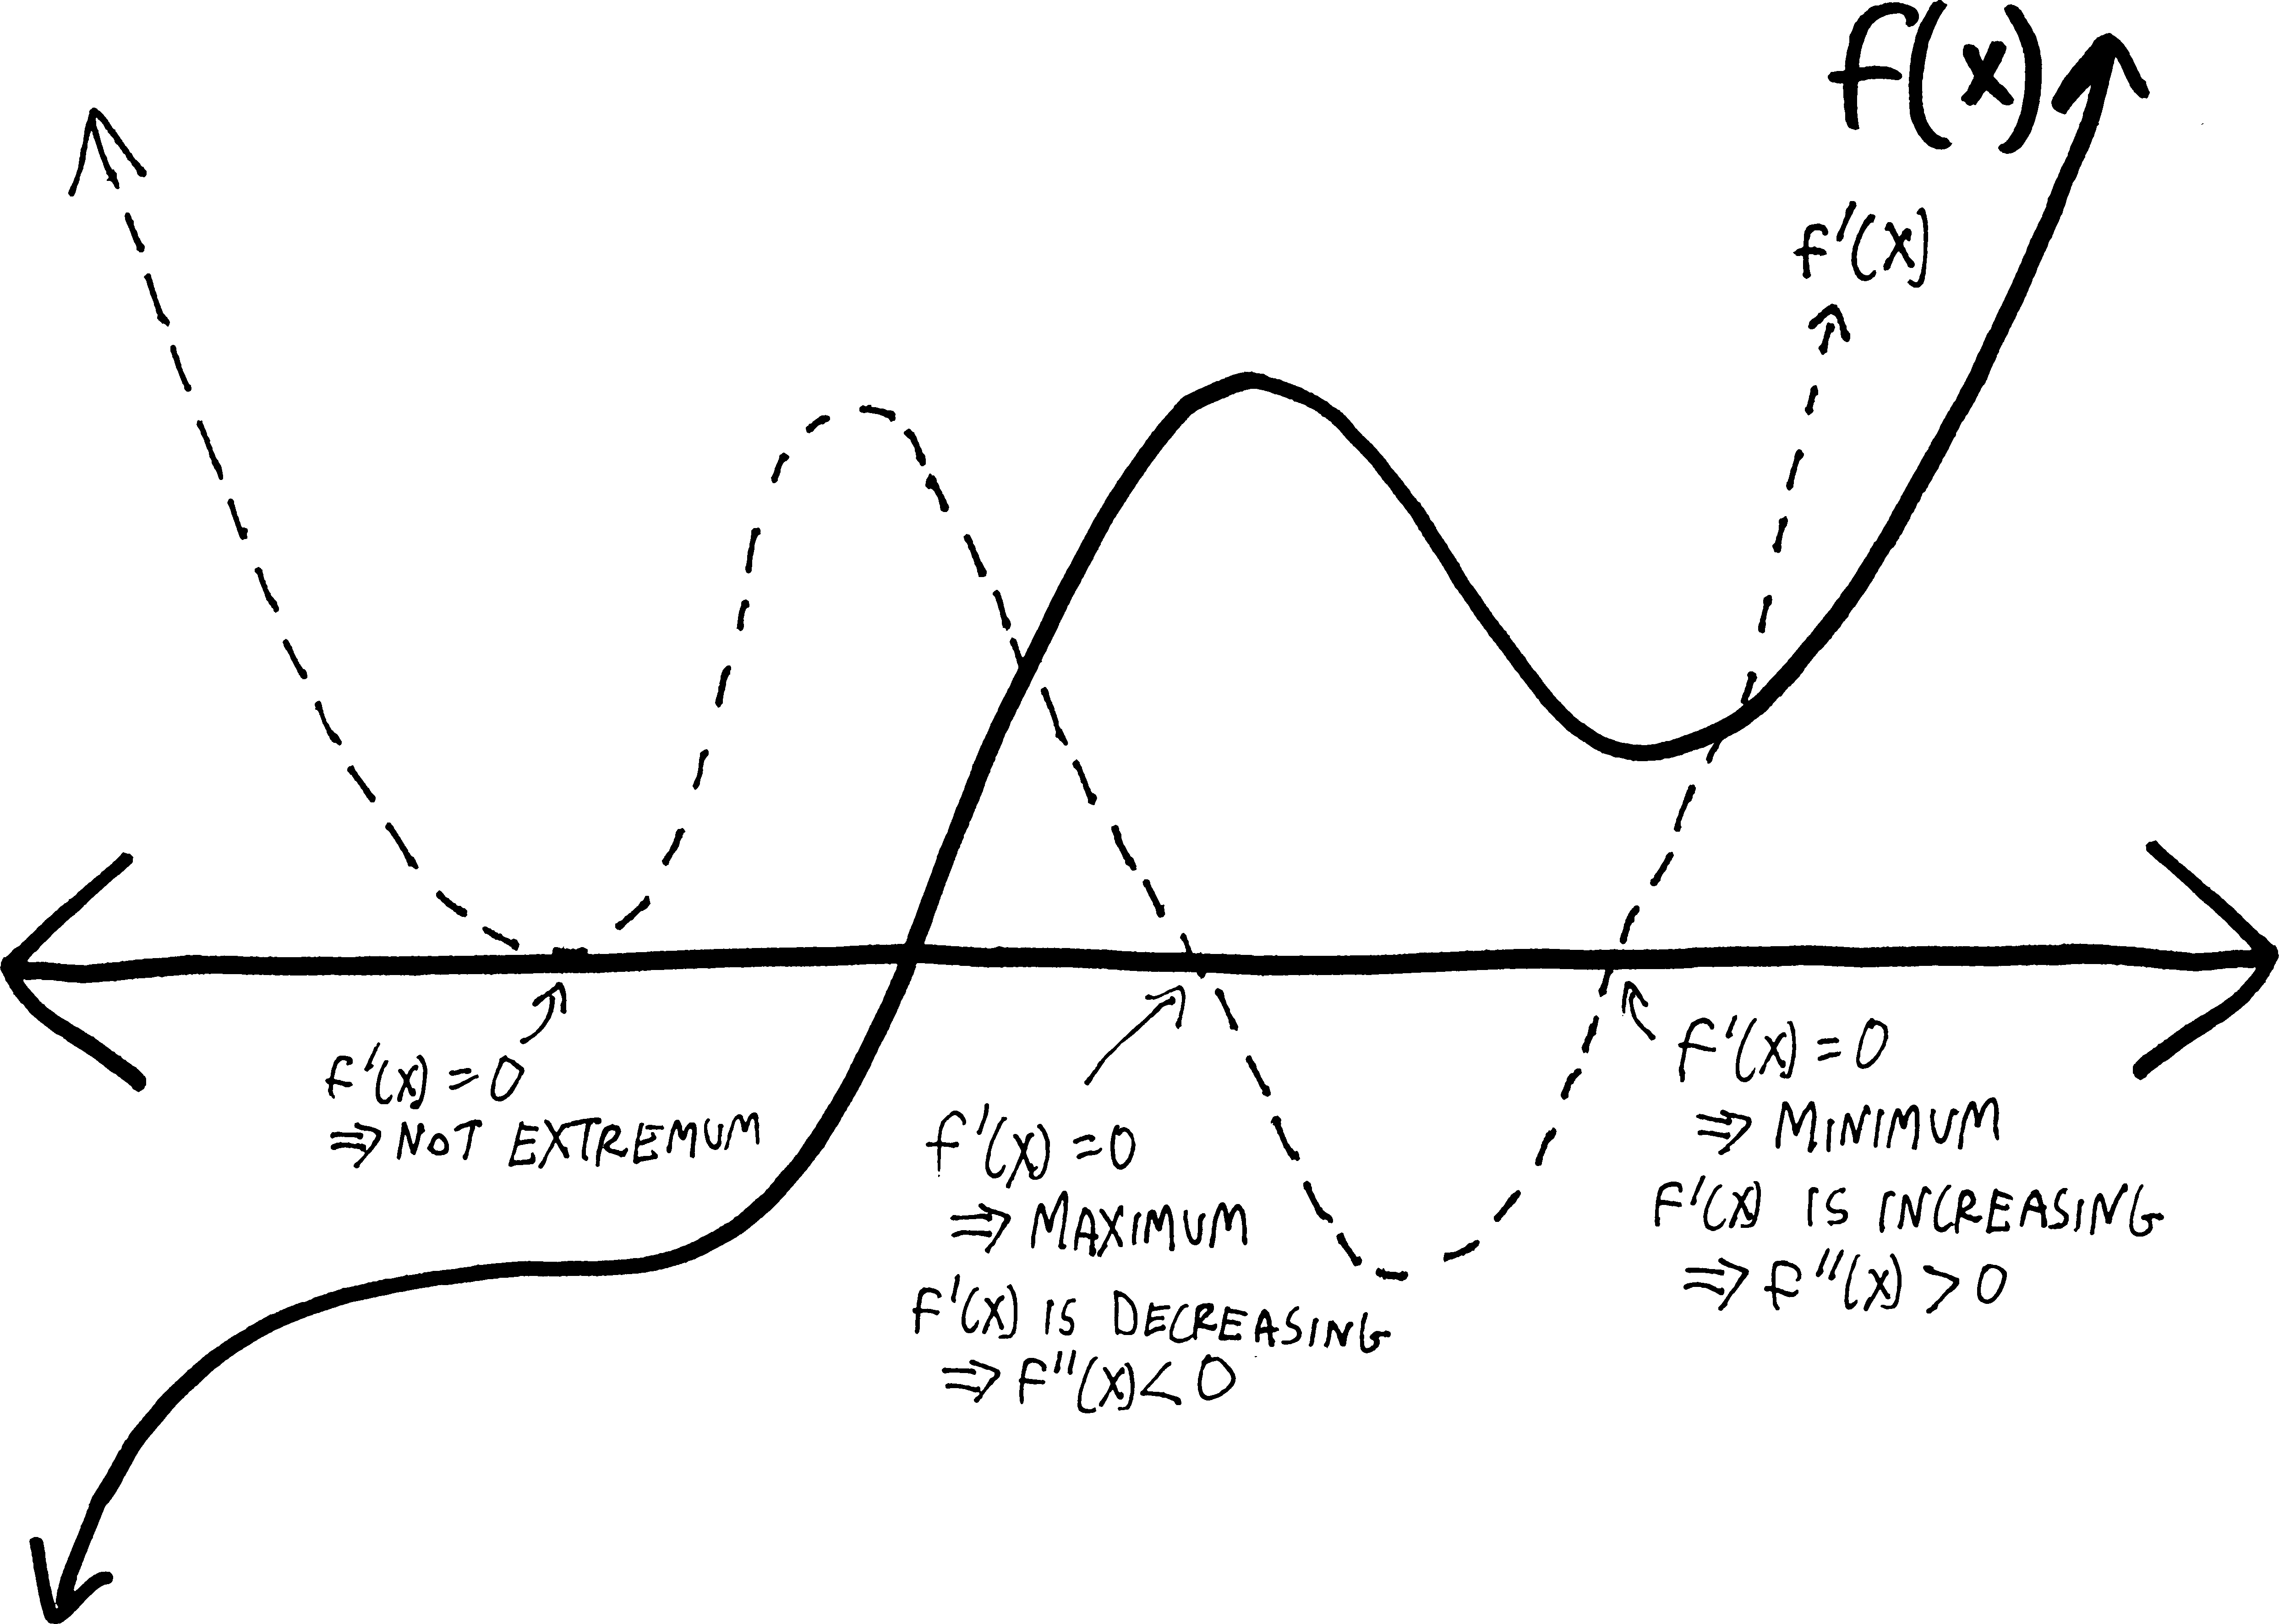 f(x)
f'(x)
f'(x)=0
⇒ NOT EXTREMUM
f'(x)=0
⇒ MAXIMUM
f'(x) IS DECREASING
⇒ f''(x)<0
f'(x)=0
⇒ MINIMUM
f'(x) IS INCREASING
⇒ f''(x)>0